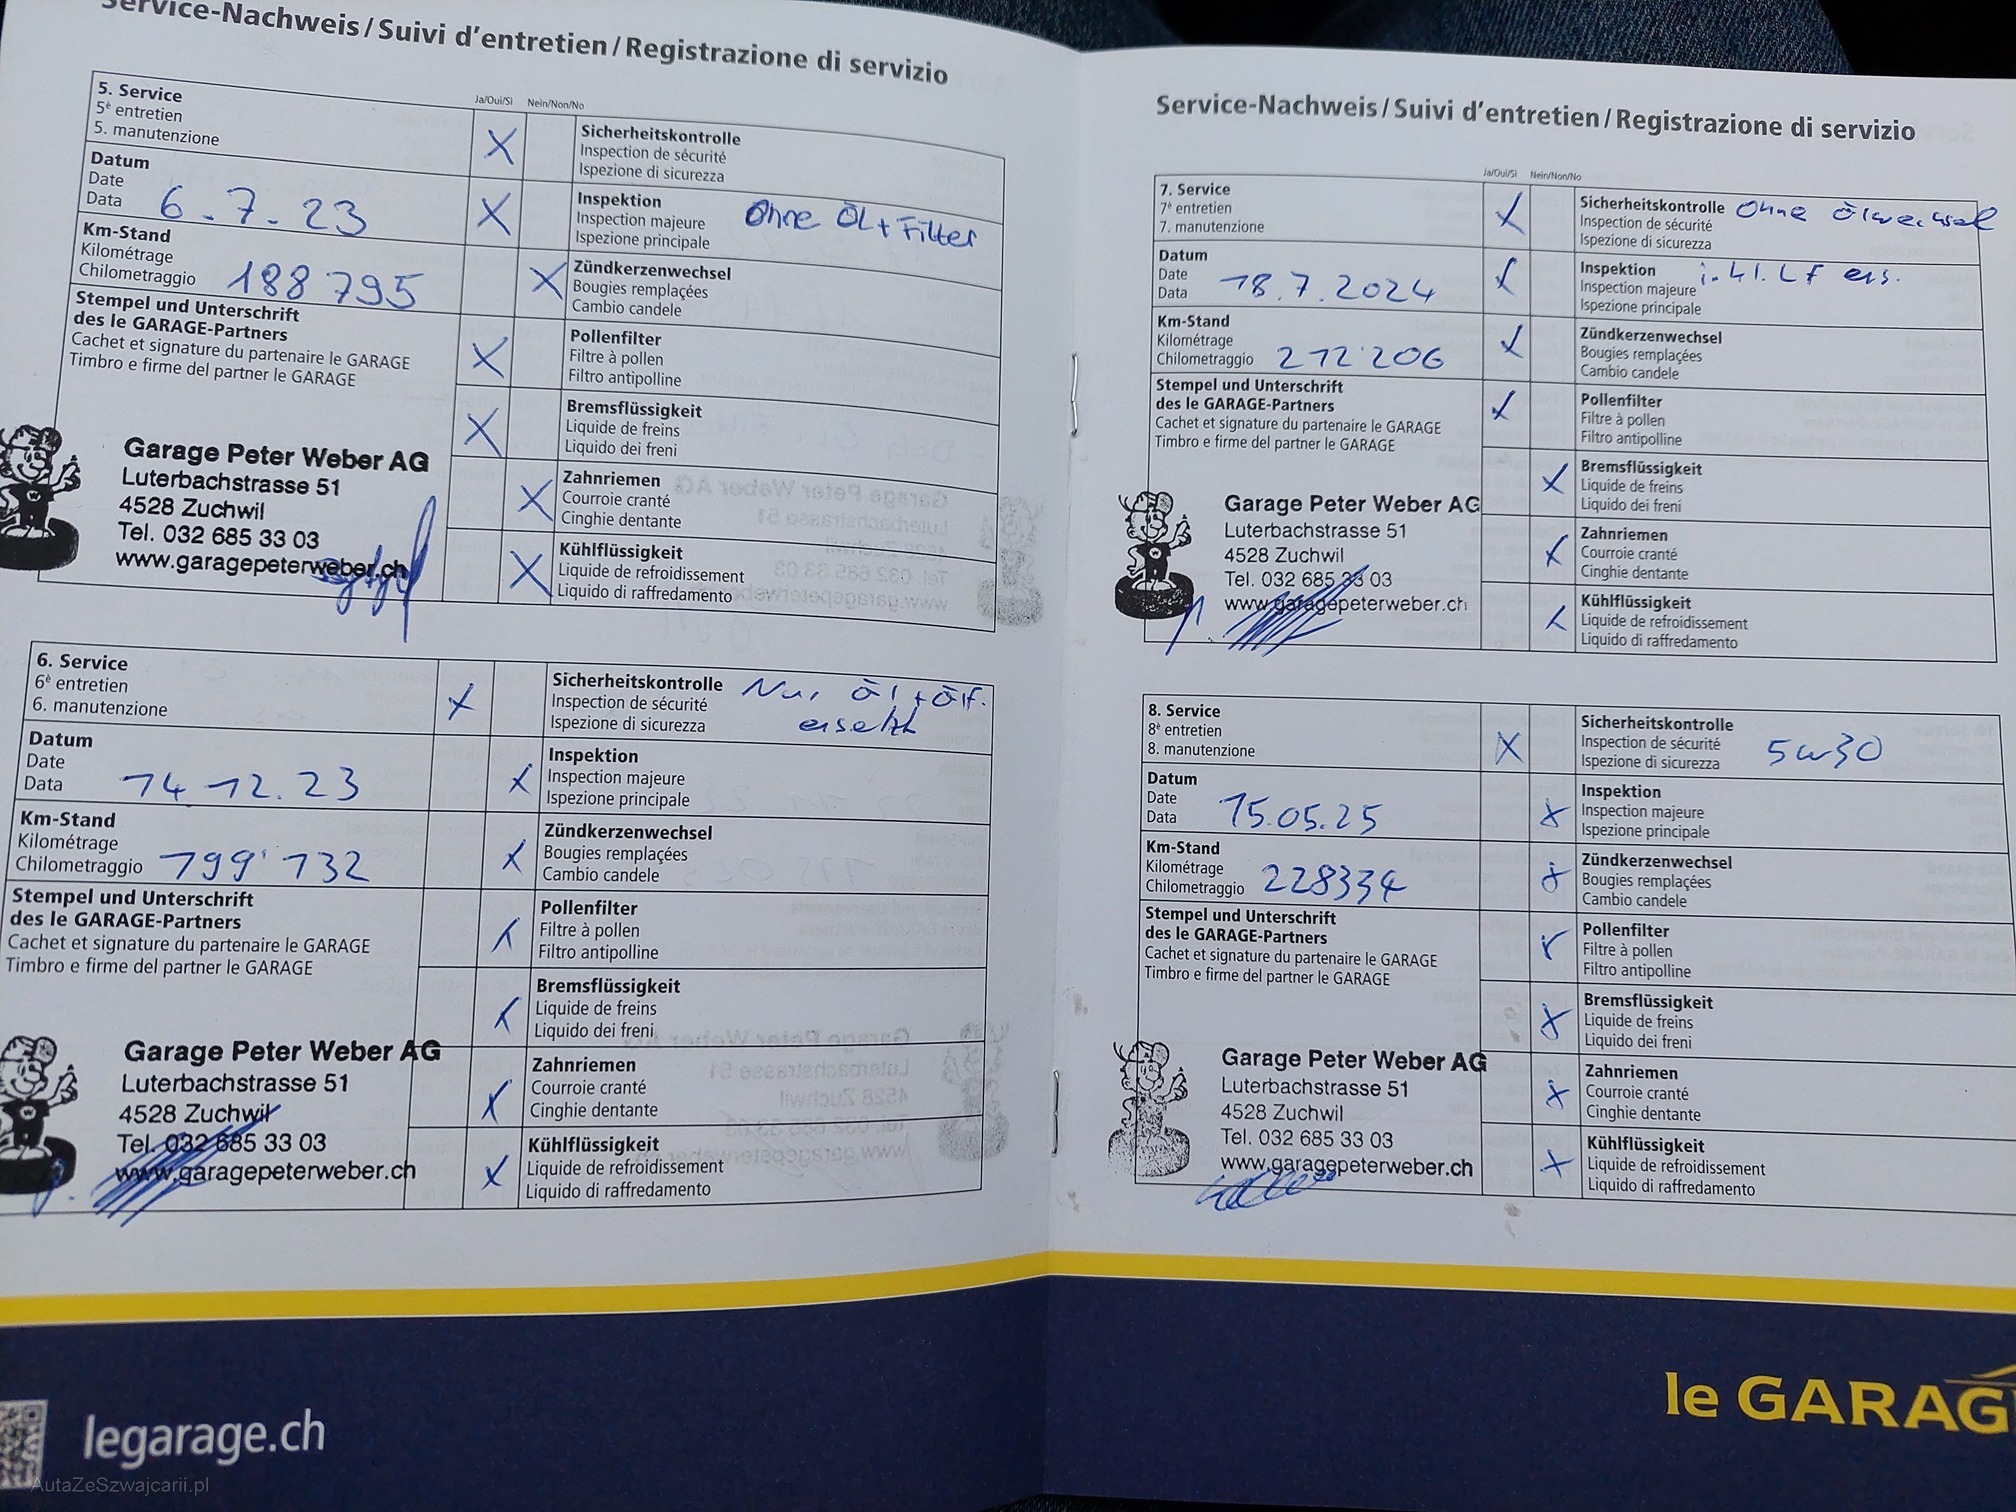 Service-Nachweis / Suivi d'entretien / Registrazione di servizio
Ja/Oui/Sì Nein/Non/No
5. Service
5è entretien
5. manutenzione
Datum
Date
Data 6.7.23
Km-Stand
Kilométrage
Chilometraggio 188795
Stempel und Unterschrift
des le GARAGE-Partners
Cachet et signature du partenaire le GARAGE
Timbro e firme del partner le GARAGE
Garage Peter Weber AG
Luterbachstrasse 51
4528 Zuchwil
Tel. 032 685 33 03
www.garagepeterweber.ch
X Sicherheitskontrolle
Inspection de sécurité
Ispezione di sicurezza
X Inspektion Ohne ÖL + Filter
Inspection majeure
Ispezione principale
X Zündkerzenwechsel
Bougies remplaçées
Cambio candele
X Pollenfilter
Filtre à pollen
Filtro antipolline
X Bremsflüssigkeit
Liquide de freins
Liquido dei freni
X Zahnriemen
Courroie cranté
Cinghie dentante
X Kühlflüssigkeit
Liquide de refroidissement
Liquido di raffredamento
6. Service
6è entretien
6. manutenzione
Datum
Date
Data 14.12.23
Km-Stand
Kilométrage
Chilometraggio 199'132
Stempel und Unterschrift
des le GARAGE-Partners
Cachet et signature du partenaire le GARAGE
Timbro e firme del partner le GARAGE
Garage Peter Weber AG
Luterbachstrasse 51
4528 Zuchwil
Tel. 032 685 33 03
www.garagepeterweber.ch
X Sicherheitskontrolle Nur Öl + Ölf.
Inspection de sécurité ersetzt
Ispezione di sicurezza
X Inspektion
Inspection majeure
Ispezione principale
X Zündkerzenwechsel
Bougies remplaçées
Cambio candele
X Pollenfilter
Filtre à pollen
Filtro antipolline
X Bremsflüssigkeit
Liquide de freins
Liquido dei freni
X Zahnriemen
Courroie cranté
Cinghie dentante
X Kühlflüssigkeit
Liquide de refroidissement
Liquido di raffredamento
legarage.ch
AutaZeSzwajcarii.pl
Service-Nachweis / Suivi d'entretien / Registrazione di servizio
Ja/Oui/Sì Nein/Non/No
7. Service
7è entretien
7. manutenzione
Datum
Date
Data 18.7.2024
Km-Stand
Kilométrage
Chilometraggio 212'206
Stempel und Unterschrift
des le GARAGE-Partners
Cachet et signature du partenaire le GARAGE
Timbro e firme del partner le GARAGE
Garage Peter Weber AG
Luterbachstrasse 51
4528 Zuchwil
Tel. 032 685 33 03
www.garagepeterweber.ch
X Sicherheitskontrolle Ohne Ölwechsel
Inspection de sécurité
Ispezione di sicurezza
X Inspektion i.kl. LF ers.
Inspection majeure
Ispezione principale
X Zündkerzenwechsel
Bougies remplaçées
Cambio candele
X Pollenfilter
Filtre à pollen
Filtro antipolline
X Bremsflüssigkeit
Liquide de freins
Liquido dei freni
X Zahnriemen
Courroie cranté
Cinghie dentante
X Kühlflüssigkeit
Liquide de refroidissement
Liquido di raffredamento
8. Service
8è entretien
8. manutenzione
Datum
Date
Data 15.05.25
Km-Stand
Kilométrage
Chilometraggio 228334
Stempel und Unterschrift
des le GARAGE-Partners
Cachet et signature du partenaire le GARAGE
Timbro e firme del partner le GARAGE
Garage Peter Weber AG
Luterbachstrasse 51
4528 Zuchwil
Tel. 032 685 33 03
www.garagepeterweber.ch
X Sicherheitskontrolle
Inspection de sécurité 5w30
Ispezione di sicurezza
X Inspektion
Inspection majeure
Ispezione principale
X Zündkerzenwechsel
Bougies remplaçées
Cambio candele
X Pollenfilter
Filtre à pollen
Filtro antipolline
X Bremsflüssigkeit
Liquide de freins
Liquido dei freni
X Zahnriemen
Courroie cranté
Cinghie dentante
X Kühlflüssigkeit
Liquide de refroidissement
Liquido di raffredamento
le GARAG